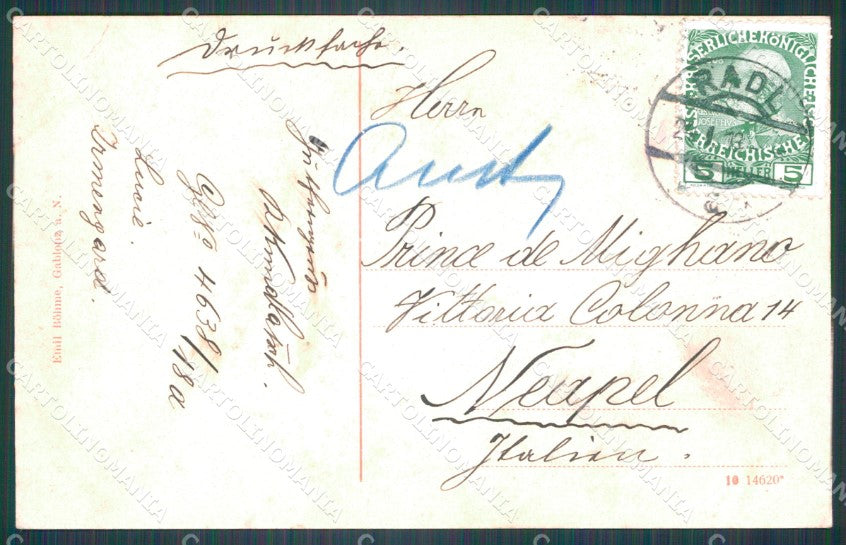 Drucksache.
Herrn
Prince de Mighano
Vittoria Colonna 14
Neapel
Italien.
No 4638/18a
Lucie.
Irmengard.
Emil Böhme, Gablonz a. N.
10 14620*
KAISERLICHE KÖNIGLICHE
ÖSTERREICHISCHE
5 HELLER 5
RADL
CARTOLINOMANIA